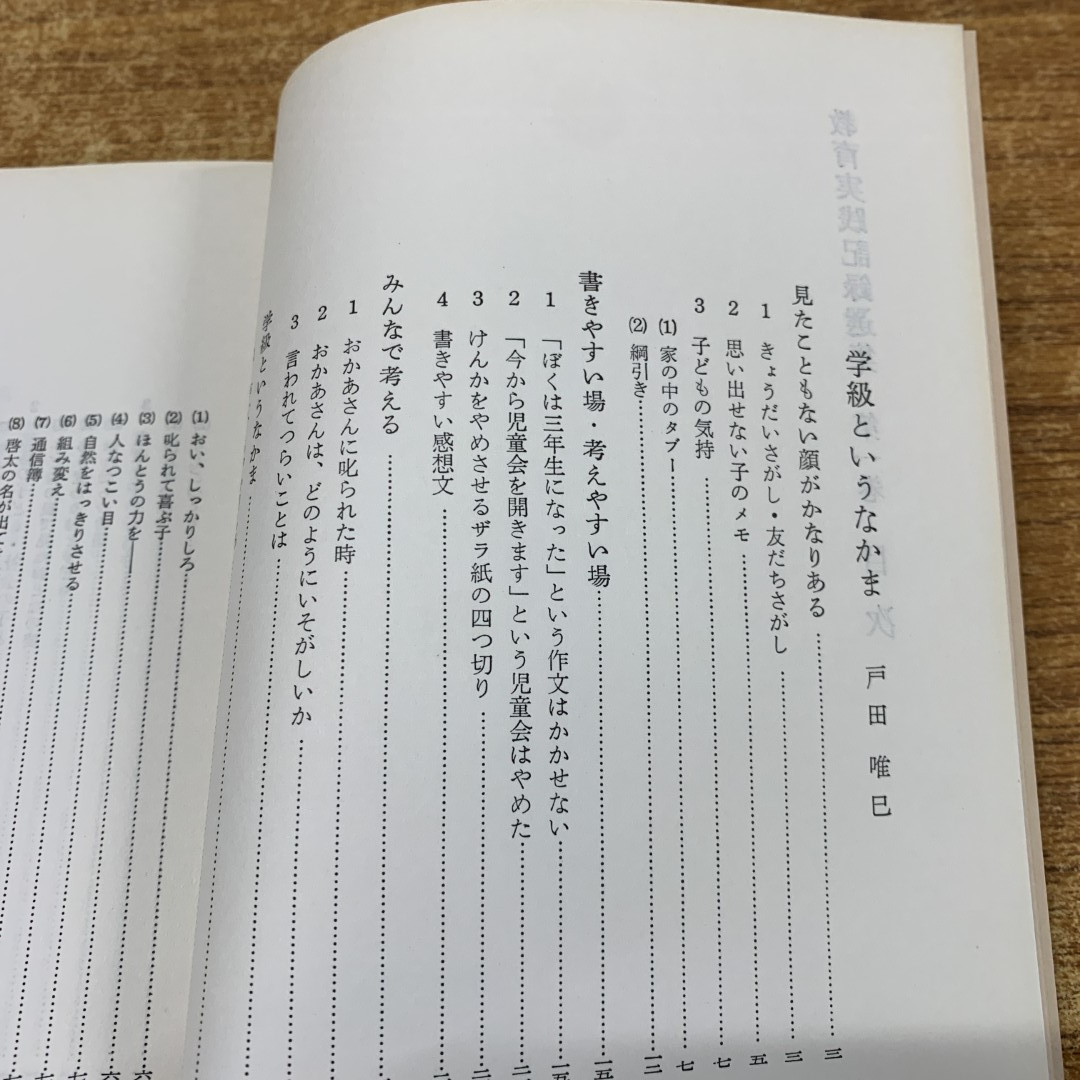 学級というなかま 戸田唯巳
見たこともない顔がかなりある……三
1 きょうだいさがし・友だちさがし……三
2 思い出せない子のメモ……五
3 子どもの気持……七
(1) 家の中のタブー……七
(2) 綱引き……一三
書きやすい場・考えやすい場……一五
1 「ぼくは三年生になった」という作文はかかせない……一五
2 「今から児童会を開きます」という児童会はやめた
3 けんかをやめさせるザラ紙の四つ切り
4 書きやすい感想文
みんなで考える
1 おかあさんに叱られた時
2 おかあさんは、どのようにいそがしいか
3 言われてつらいことは
学級というなかま
(1) おい、しっかりしろ
(2) 叱られて喜ぶ子
(3) ほんとうの力を――
(4) 人なつこい目
(5) 自然をはっきりさせる
(6) 組み変え
(7) 通信簿
(8) 啓太の名が出て